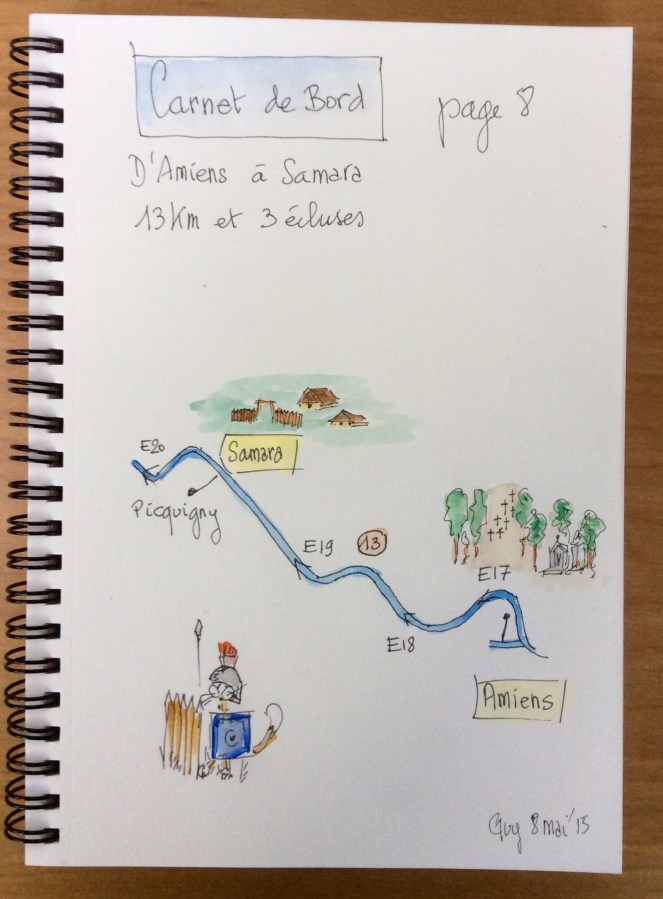 Carnet de Bord
page 8
D'Amiens à Samara
13 Km et 3 écluses
E20
Samara
Picquigny
E19
13
E17
E18
Amiens
Guy 8 mai '15